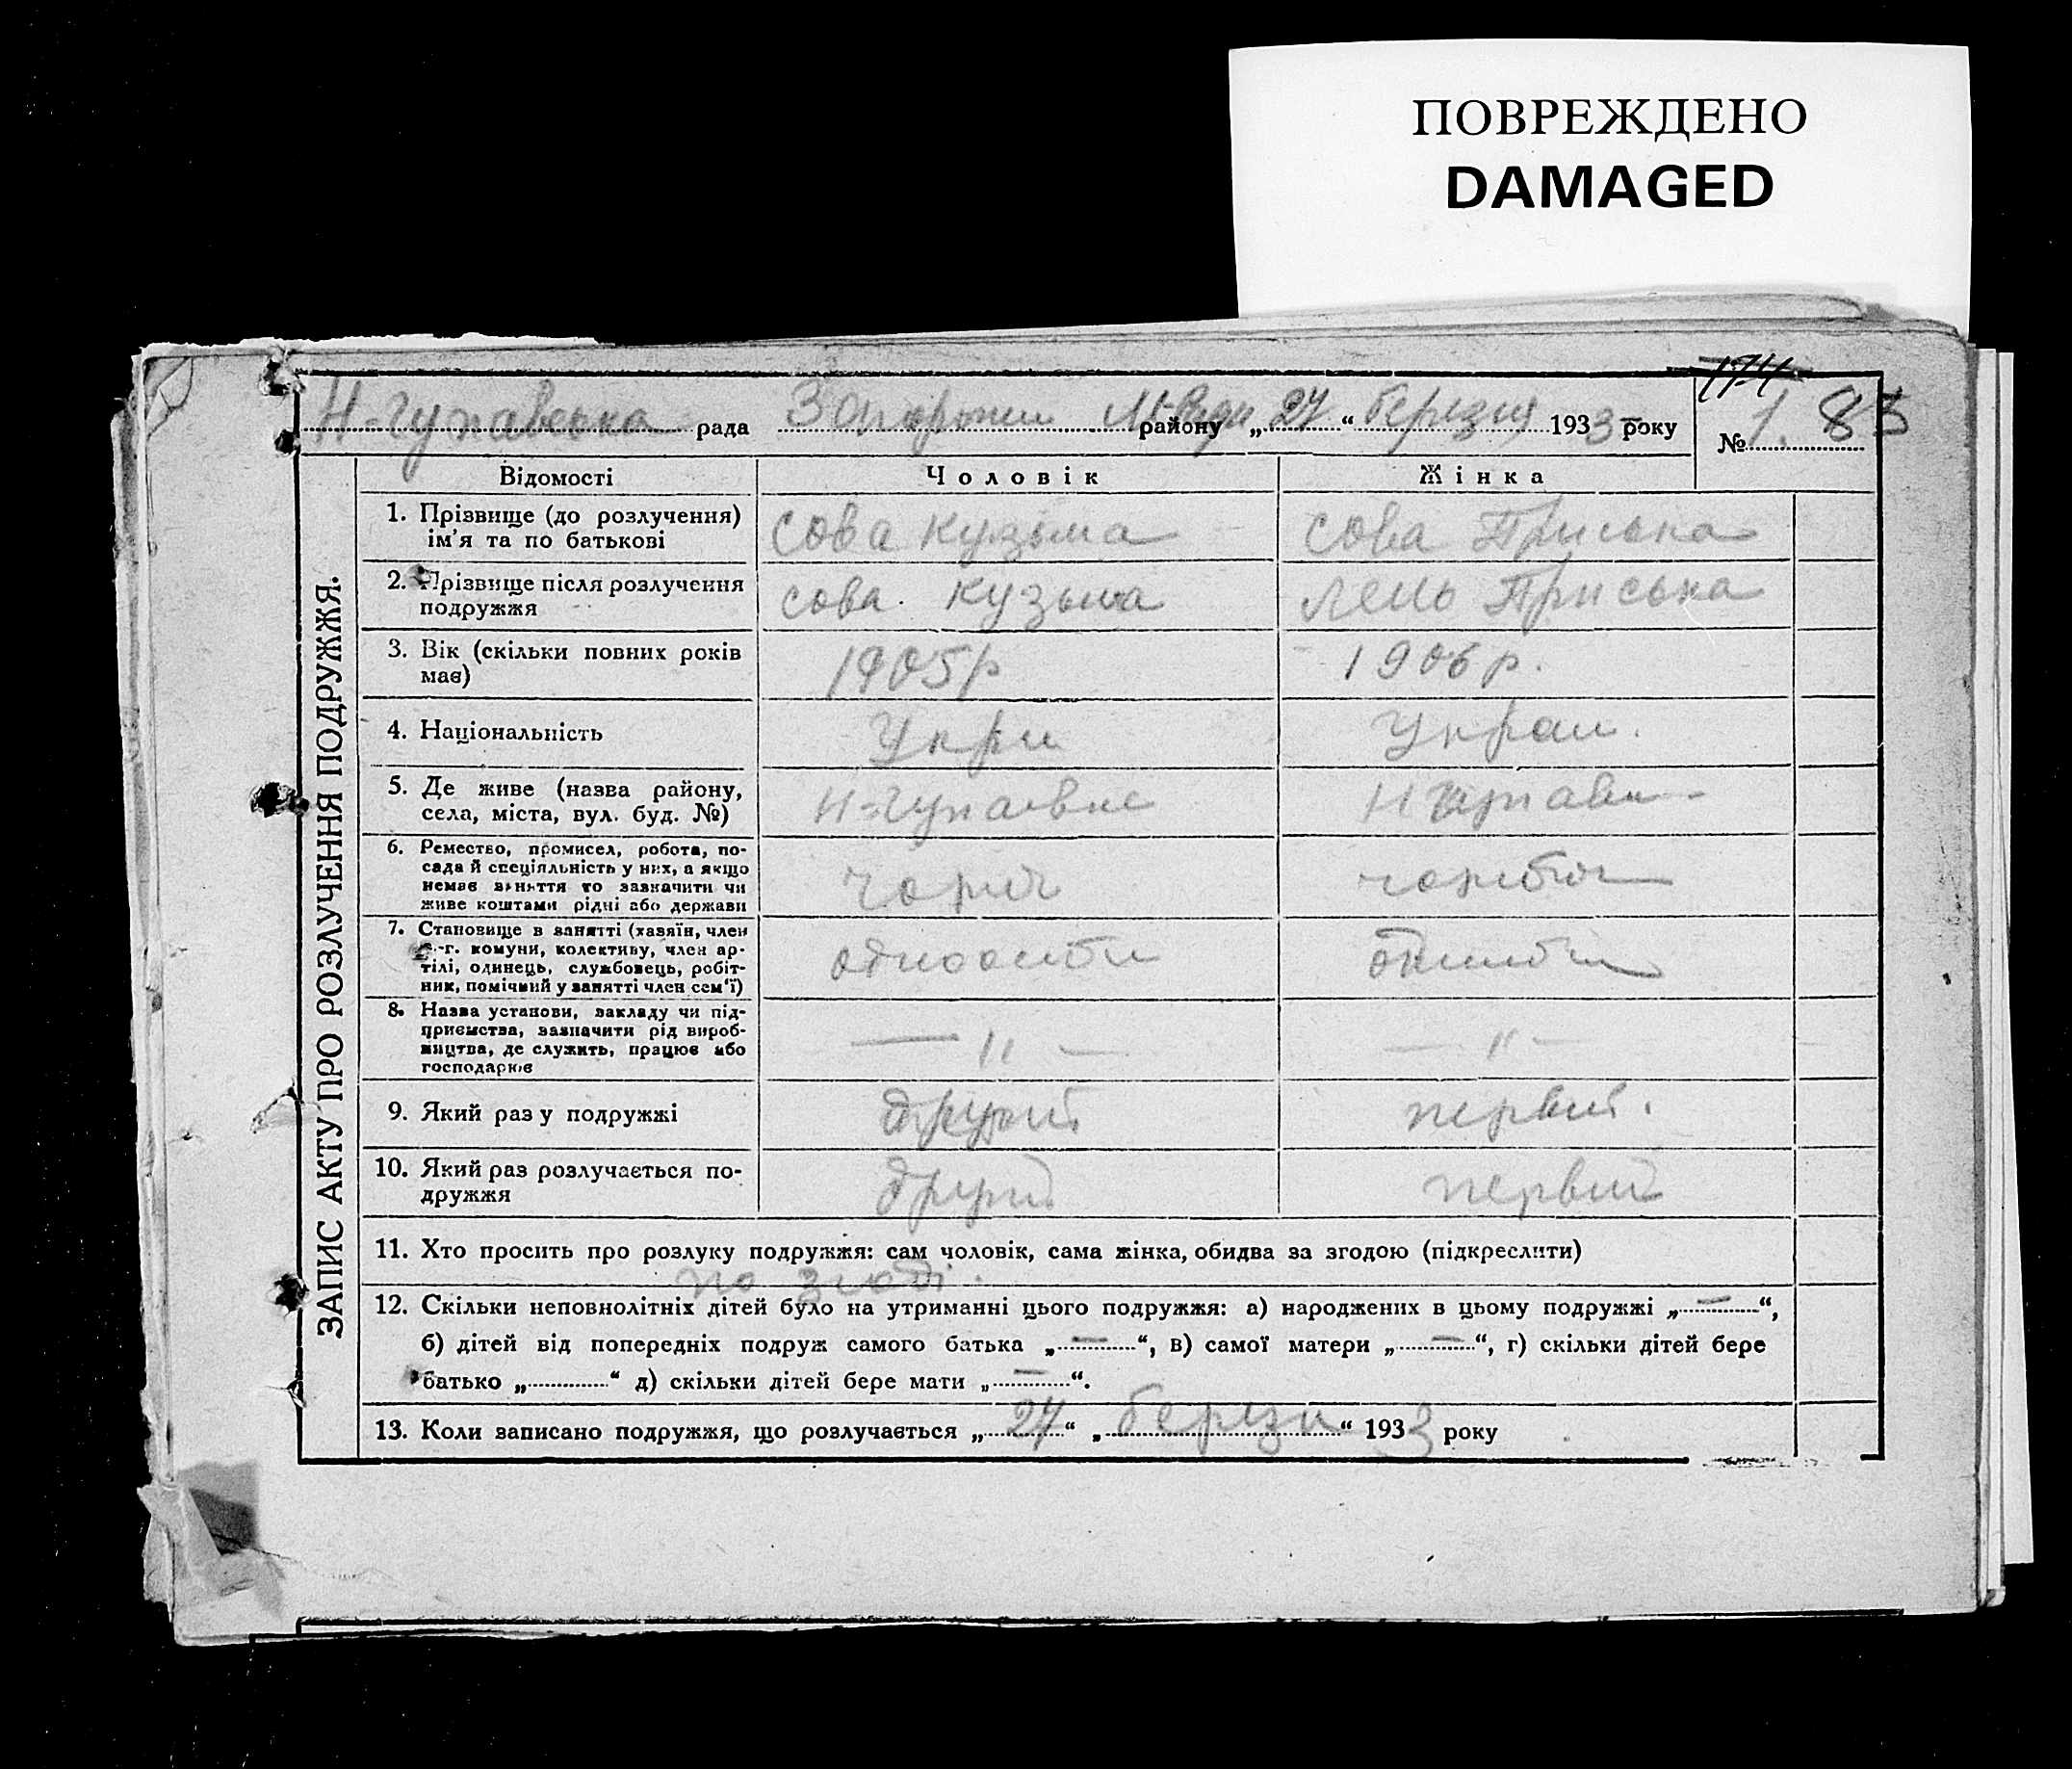 ПОВРЕЖДЕНО
DAMAGED
174
рада району „27“ березня 1933 року
№ 1. 83
ЗАПИС АКТУ ПРО РОЗЛУЧЕННЯ ПОДРУЖЖЯ.
Відомості Чоловік Жінка
1. Прізвище (до розлучення) ім'я та по батькові Сова Кузьма Сова Приська
2. Прізвище після розлучення подружжя Сова Кузьма Лень Приська
3. Вік (скільки повних років має) 1905 р 1906 р.
4. Національність Укри Украи.
5. Де живе (назва району, села, міста, вул. буд. №)
6. Ремество, промисел, робота, посада й спеціяльність у них, а якщо немає заняття то зазначити чи живе коштами рідні або держави
7. Становище в занятті (хазяїн, член с.-г. комуни, колективу, член артілі, одинець, службовець, робітник, помічний у занятті член сем'ї)
8. Назва установи, закладу чи підприємства, зазначити рід виробництва, де служить, працює або господарює — „ — — „ —
9. Який раз у подружжі другий первий.
10. Який раз розлучається подружжя другий первий
11. Хто просить про розлуку подружжя: сам чоловік, сама жінка, обидва за згодою (підкреслити)
по згоді.
12. Скільки неповнолітніх дітей було на утриманні цього подружжя: а) народжених в цьому подружжі „—“,
б) дітей від попередніх подруж самого батька „—“, в) самої матери „—“, г) скільки дітей бере
батько „ “ д) скільки дітей бере мати „—“.
13. Коли записано подружжя, що розлучається „27“ „березня“ 1933 року